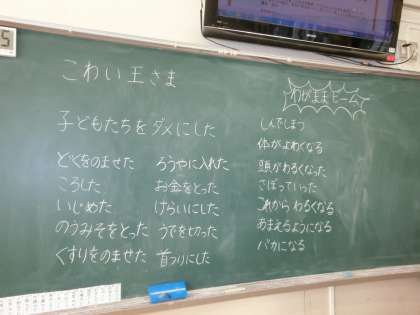 こわい王さま
子どもたちをダメにした
どくをのませた ろうやに入れた
ころした お金をとった
いじめた けらいにした
のうみそをとった うでを切った
くすりをのませた 首つりにした
わがままビーム
しんでしまう
体がよわくなる
頭がわるくなった
さぼっていった
これからわるくなる
あまえるようになる
バカになる
5